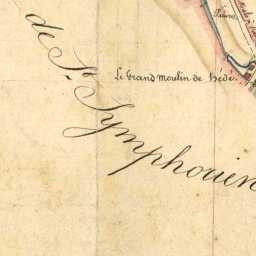 Le Grand Moulin de hédé
de St. Symphorien